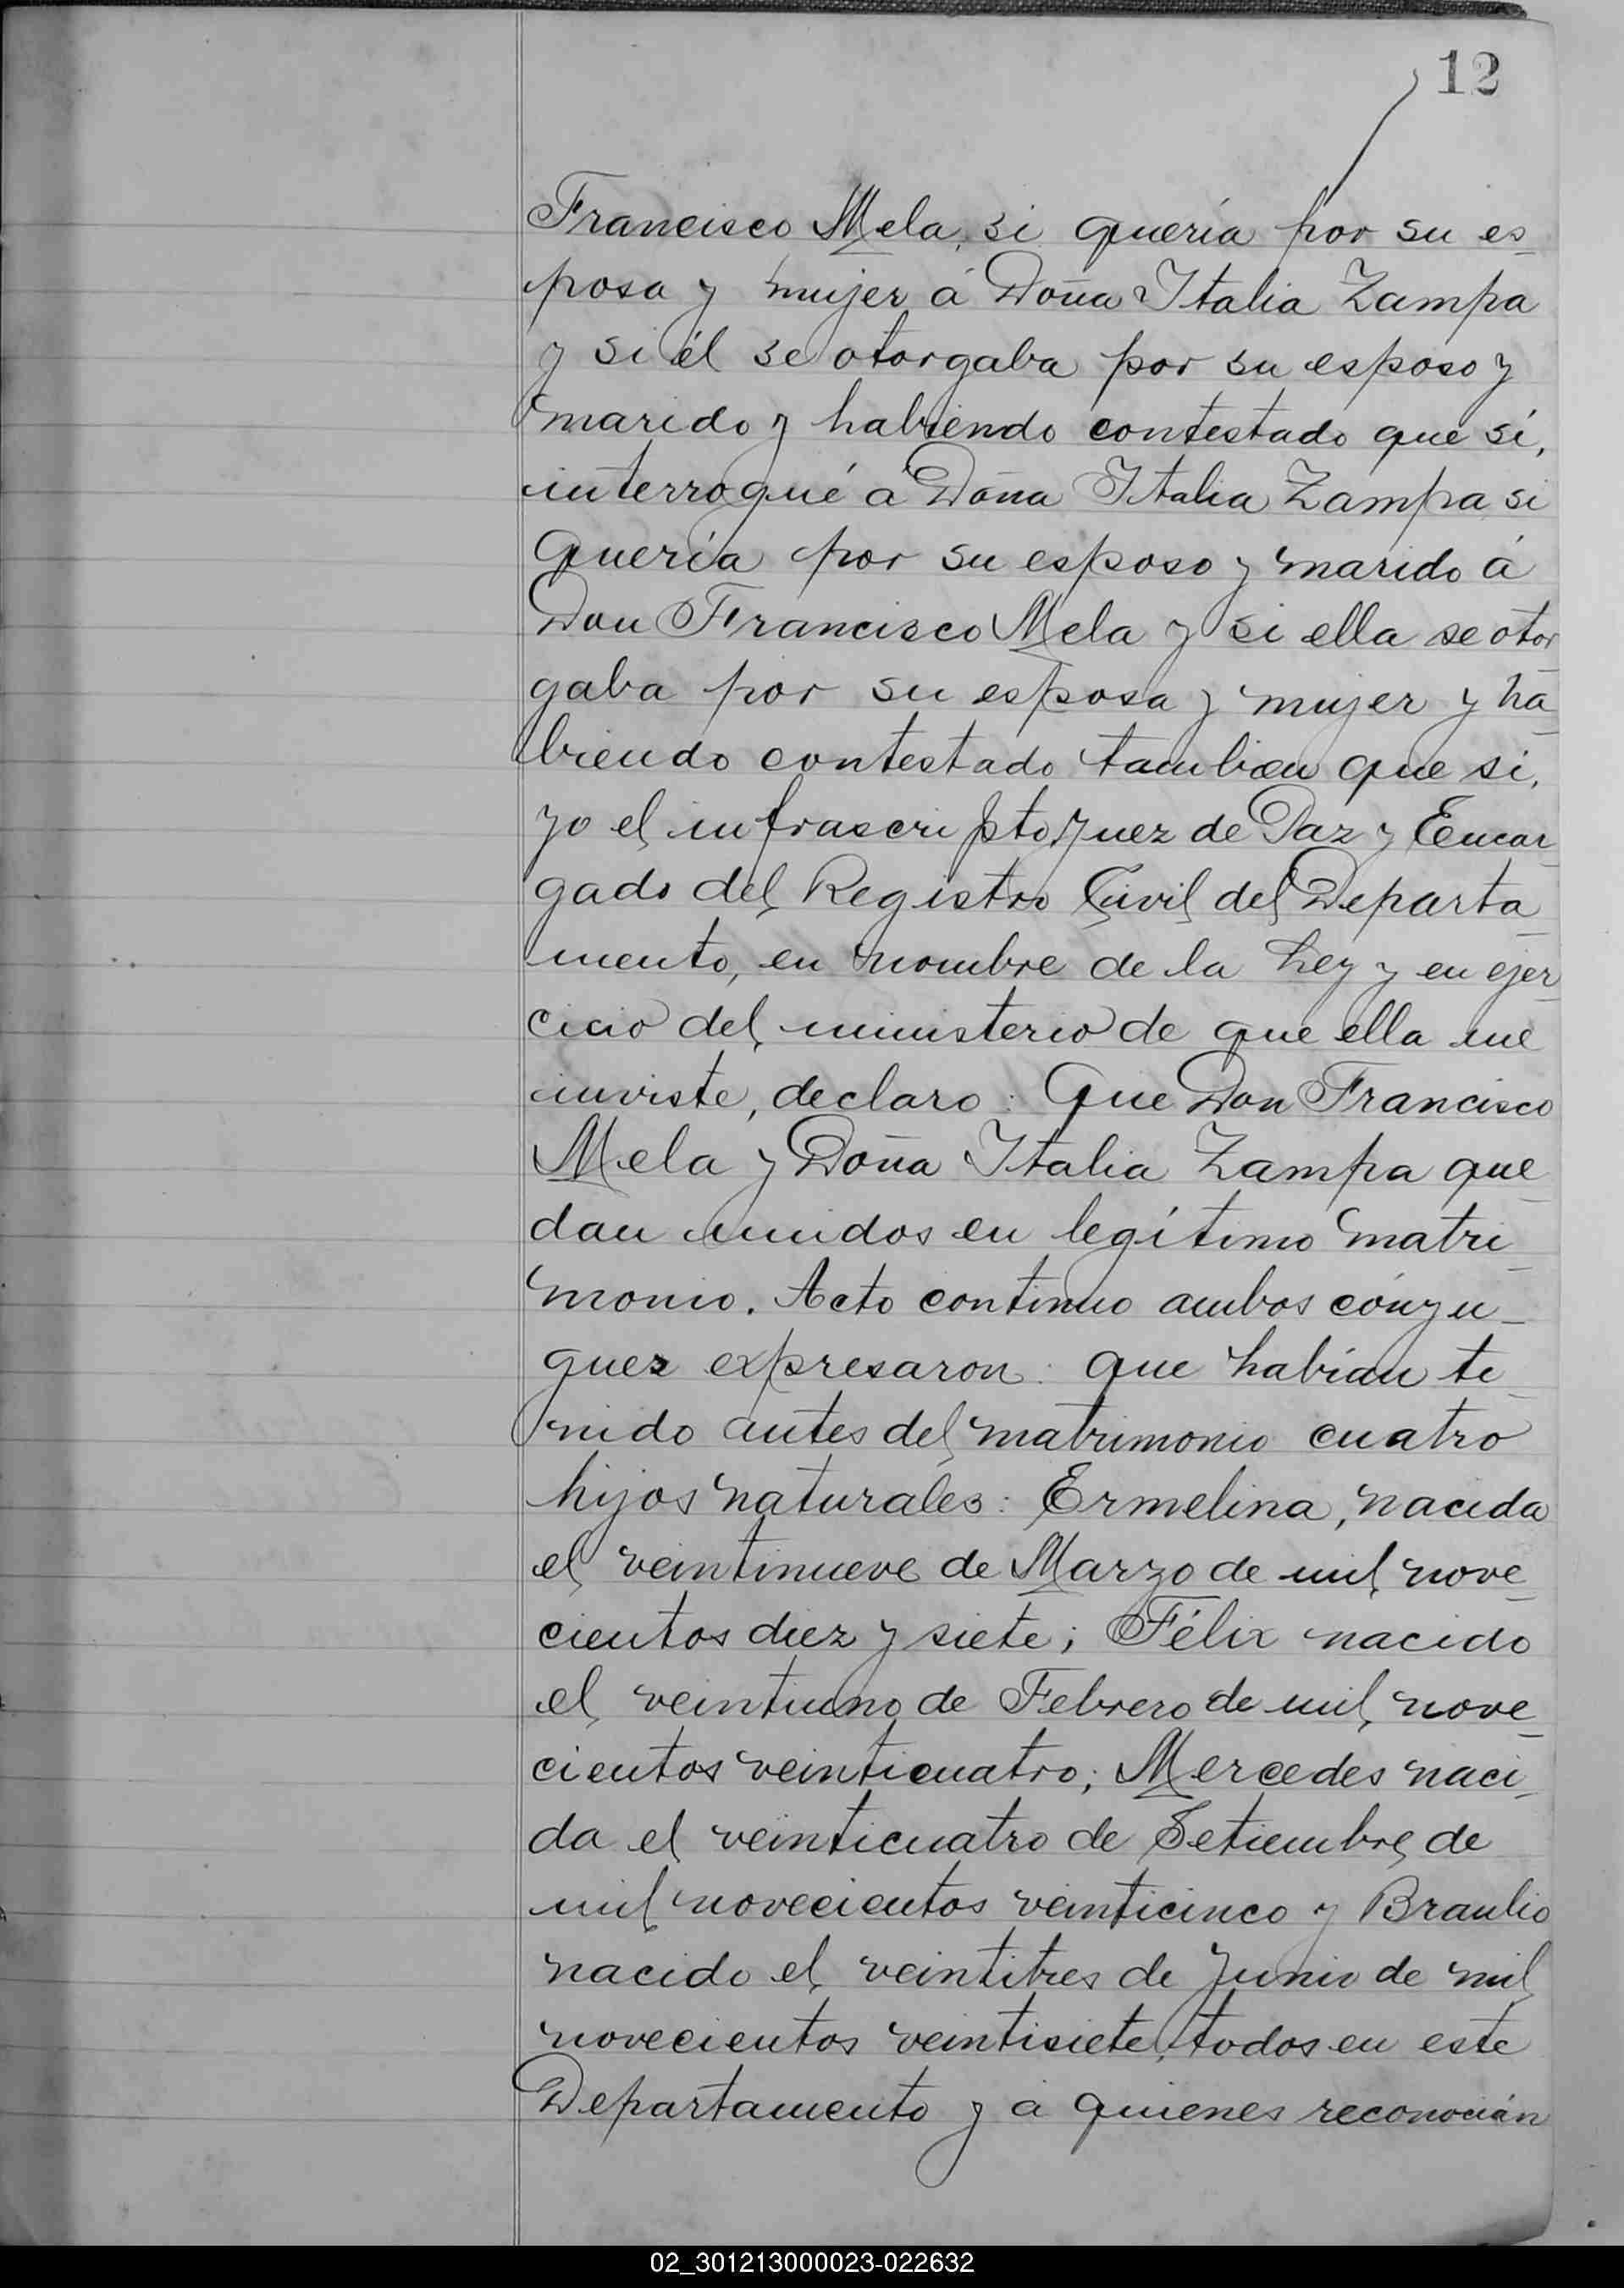 12
Francisco Mela, si quería por su es
posa y mujer á Doña Italia Zampa
y si él se otorgaba por su esposo y
marido y habiendo contestado que sí,
interrogué á Doña Italia Zampa si
quería por su esposo y marido á
Don Francisco Mela y si ella se otor
gaba por su esposa y mujer y ha
biendo contestado tambien que si,
yo el infrascripto Juez de Paz y Encar
gado del Registro Civil del Departa
mento, en nombre de la Ley y en ejer
cicio del ministerio de que ella me
inviste, declaro: Que Don Francisco
Mela y Doña Italia Zampa que
dan unidos en legítimo matri
monio. Acto continuo ambos cónyu-
gues expresaron: que habían te
nido antes del matrimonio cuatro
hijos naturales: Ermelina, nacida
el veintinueve de Marzo de mil nove
cientos diez y siete; Félix nacido
el veintiuno de Febrero de mil nove
cientos veinticuatro; Mercedes naci
da el veinticuatro de Setiembre de
mil novecientos veinticinco y Braulio
nacido el veintitres de Junio de mil
novecientos veintisiete, todos en este
Departamento y á quienes reconocían
02_301213000023-022632